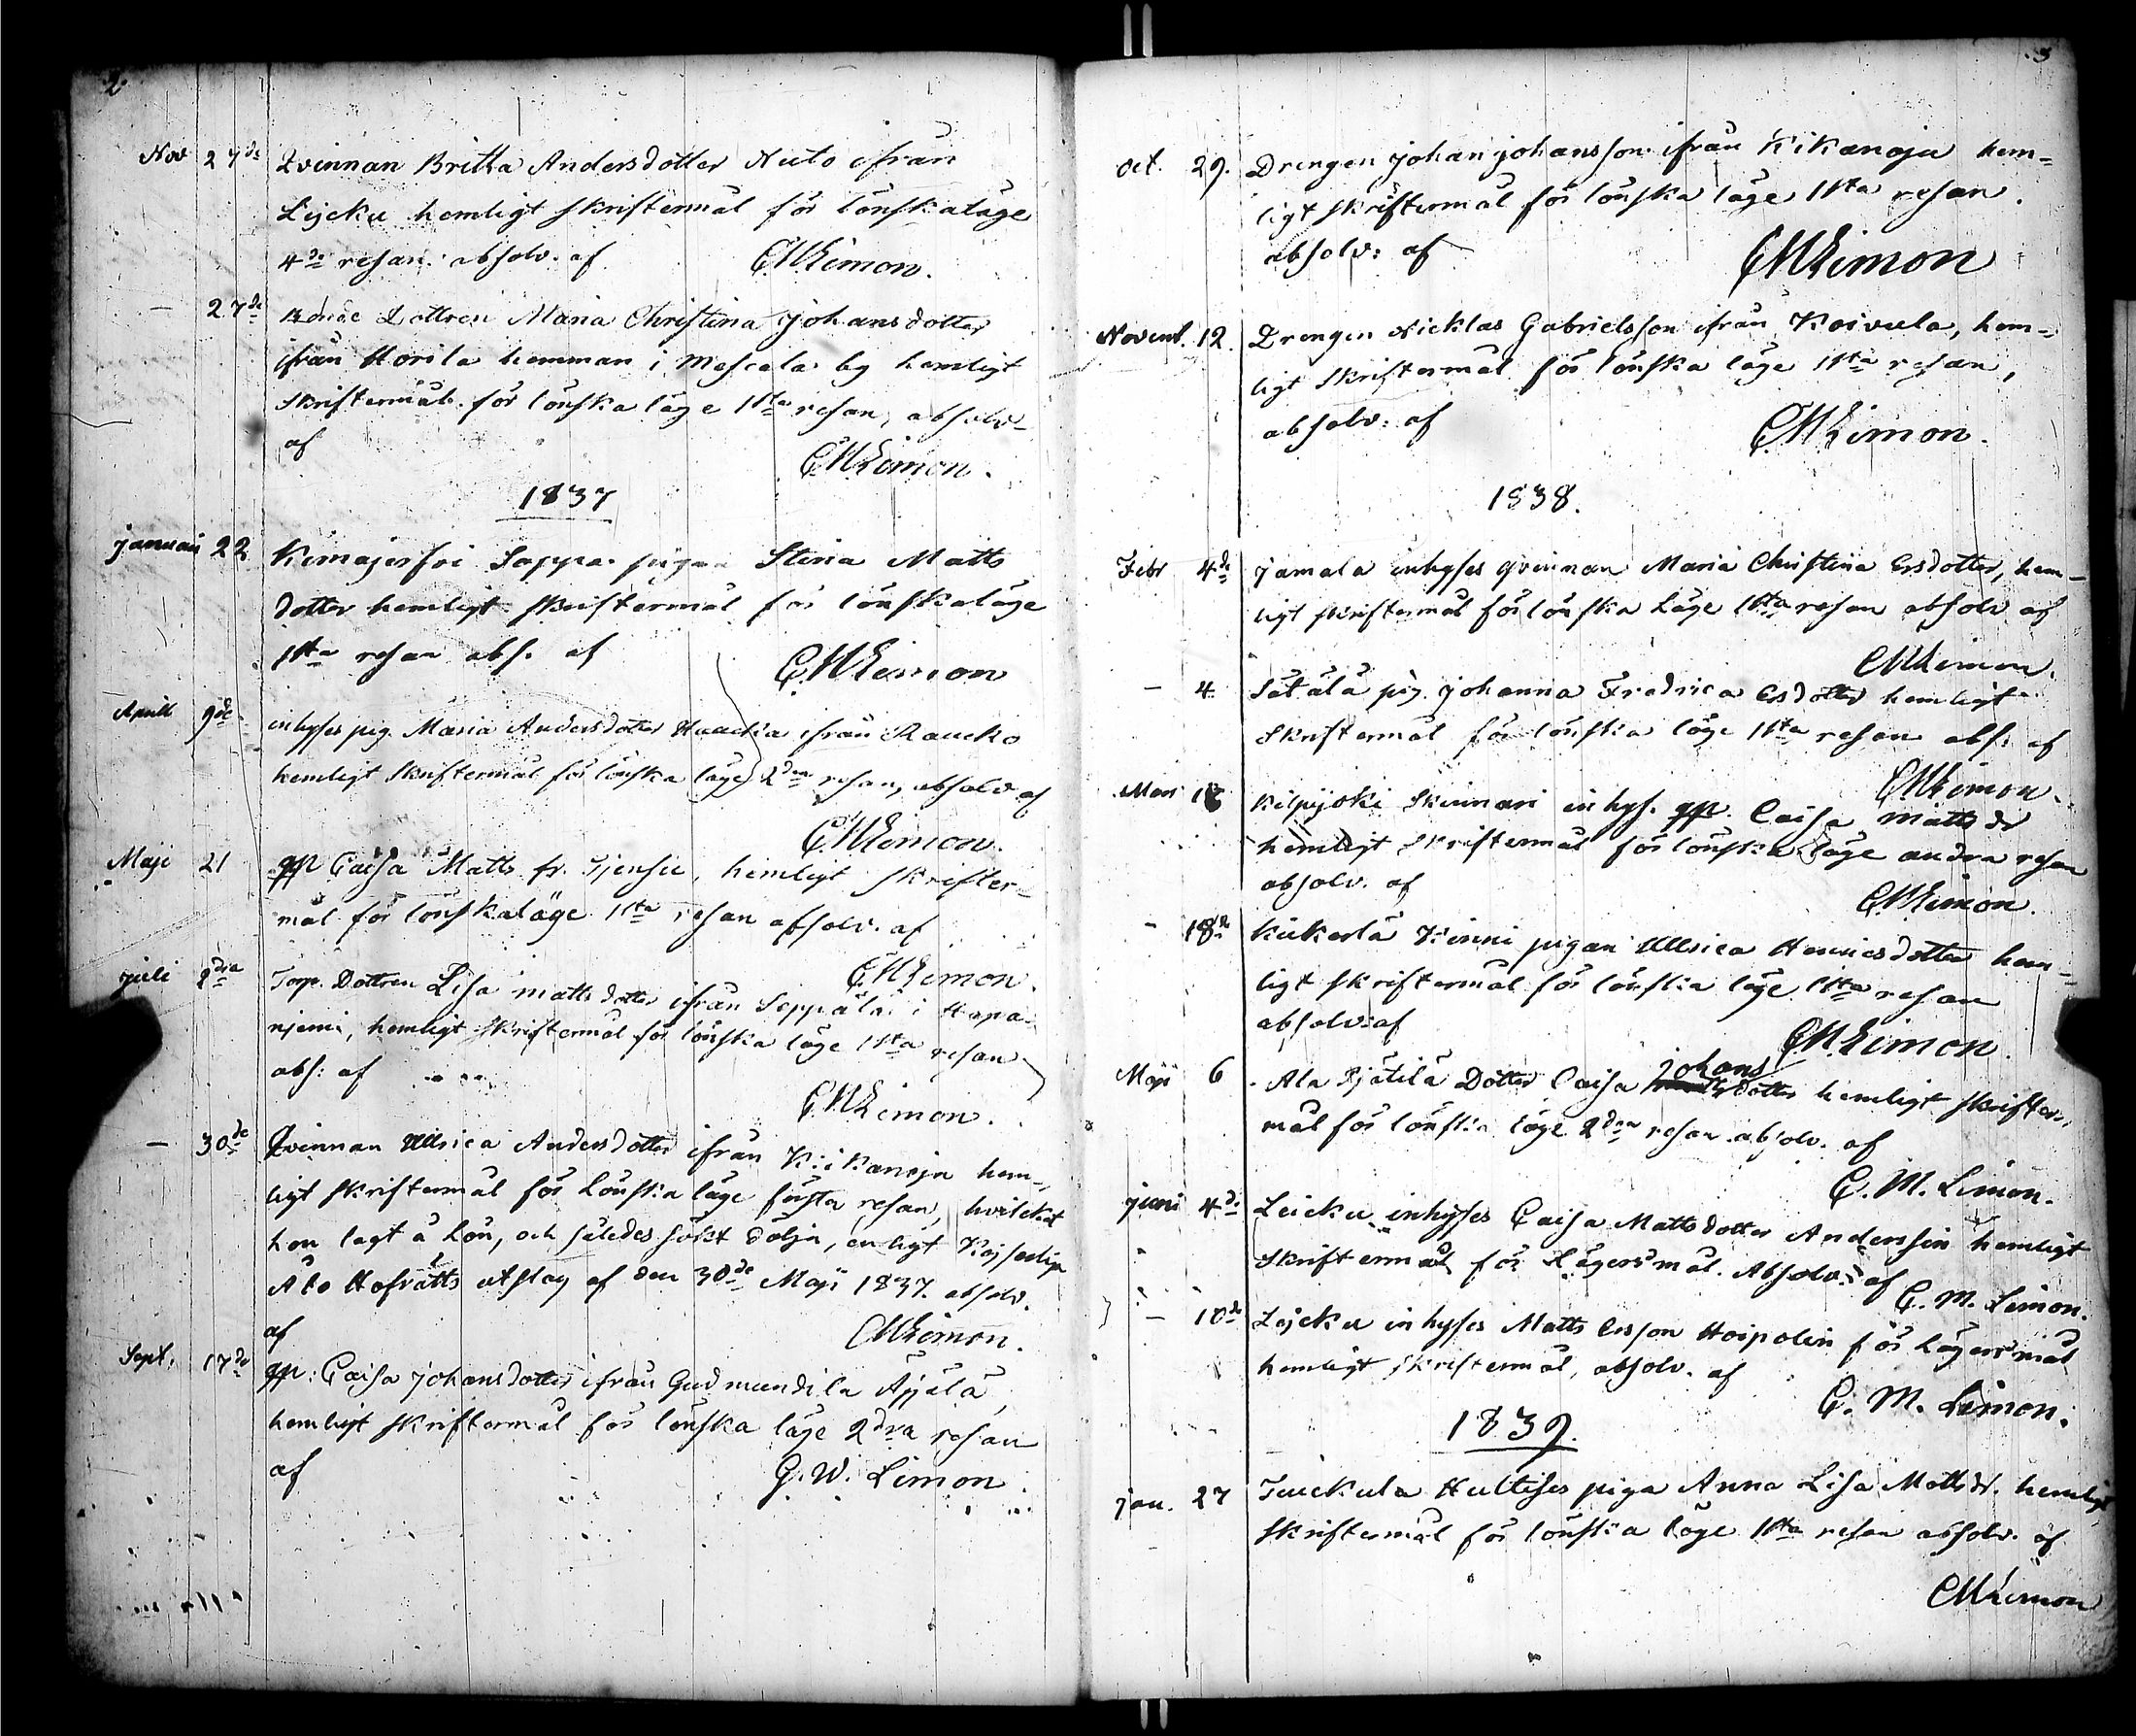 2.
Nov 27de Qvinnan Britta Andersdotter Nuto ifrån
Lejcku hemligt skriftermål för lönskaläge
4de resan absolv. af CMLimon.
— 27de Bonde Dottren Maria Christina Johansdotter
ifrån Horila hemman i Mescala by hemligt
Skriftermål för lönska läge 1sta resan, absolv
af CMLimon.
1837
januari 22 Sappa pigan Stina Matts
dotter hemligt skriftermål för lönskaläge
1sta resan abs. af CMLimon
Aprill 9de inhyses pig. Maria Andersdotter ifrån Raucko
hemligt Skriftermål för lönska läge 2dra resan, absolv af
CMLimon.
Maji 21 qp Caisa Matts fr. hemligt skrifter-
mål för lönskaläge 1sta resan absolv. af
CMLimon.
juli 2dra Torp. Dottren Lisa mattsdotter ifrån Seppälä i Hapa-
njemi, hemligt skriftermål för lönska läge 1sta resan
abs: af
CMLimon.
— 30de Qvinnan Ullrica Andersdotter ifrån Kikanoja hem-
ligt skriftermål för Lönska läge första resan, hvilcket
hon lagt å Lön, och således sökt dölja, enligt Kejserlige
Åbo Hofrätts utslag af den 30de Maji 1837. absolv.
af CMLimon.
Sept. 17de qp: Caisa Johansdotter ifrån Gudmundila Äijälä,
hemligt skriftermål för lönska läge 2dra resan
af G. W. Limon
3
oct. 29. Drengen Johan Johansson ifrån Kikanoja hem-
ligt skriftermål för lönska läge 1sta resan.
absolv: af CMLimon
Novemb. 12. Drengen Nicklas Gabrielsson ifrån Koivula, hem-
ligt Skriftermål för lönska läge 1sta resan,
absolv: af CMLimon.
1838.
Febr 4de Jamala inhyses qvinnan Maria Christina Ersdotter, hem-
ligt skriftermål för lönska Läge 1sta resan absolv af
CMLimon.
— 4. Sätälä pig. Johanna Fredrica Ersdotter hemligt
Skriftermål för lönska läge 1sta resan abs: af
CMLimon.
Mars 18 Kilpijoki Skinnari inhys. qp. Caisa matts dr
hemligt Skriftermål för lönska läge andra resan
absolv. af CMLimon.
— 18de Kukerlä Kinni pigan Ullrica Henricsdotter hem-
ligt skriftermål för lönska läge 1sta resan
absolv: af CM.Limon.
Maji 6 Ala Dotter Caisa Johans dotter hemligt skrifter-
mål för lönska läge 2dra resan absolv. af
C. M. Limon.
juni 4de Leicku inhyses Caisa Mattsdotter Anderssin hemligt
Skriftermål för Lägersmål. Absolv. af C. M. Limon.
— 10de Lejcku inhyses Matts Ersson Hoipolin för Lägersmål
hemligt skriftermål, absolv. af
C. M. Limon.
1839.
jan. 27 Tuickula Hultises piga Anna Lisa Mattsdr. hemligt
skriftermål för lönska läge 1sta resan absolv. af
CMLimon